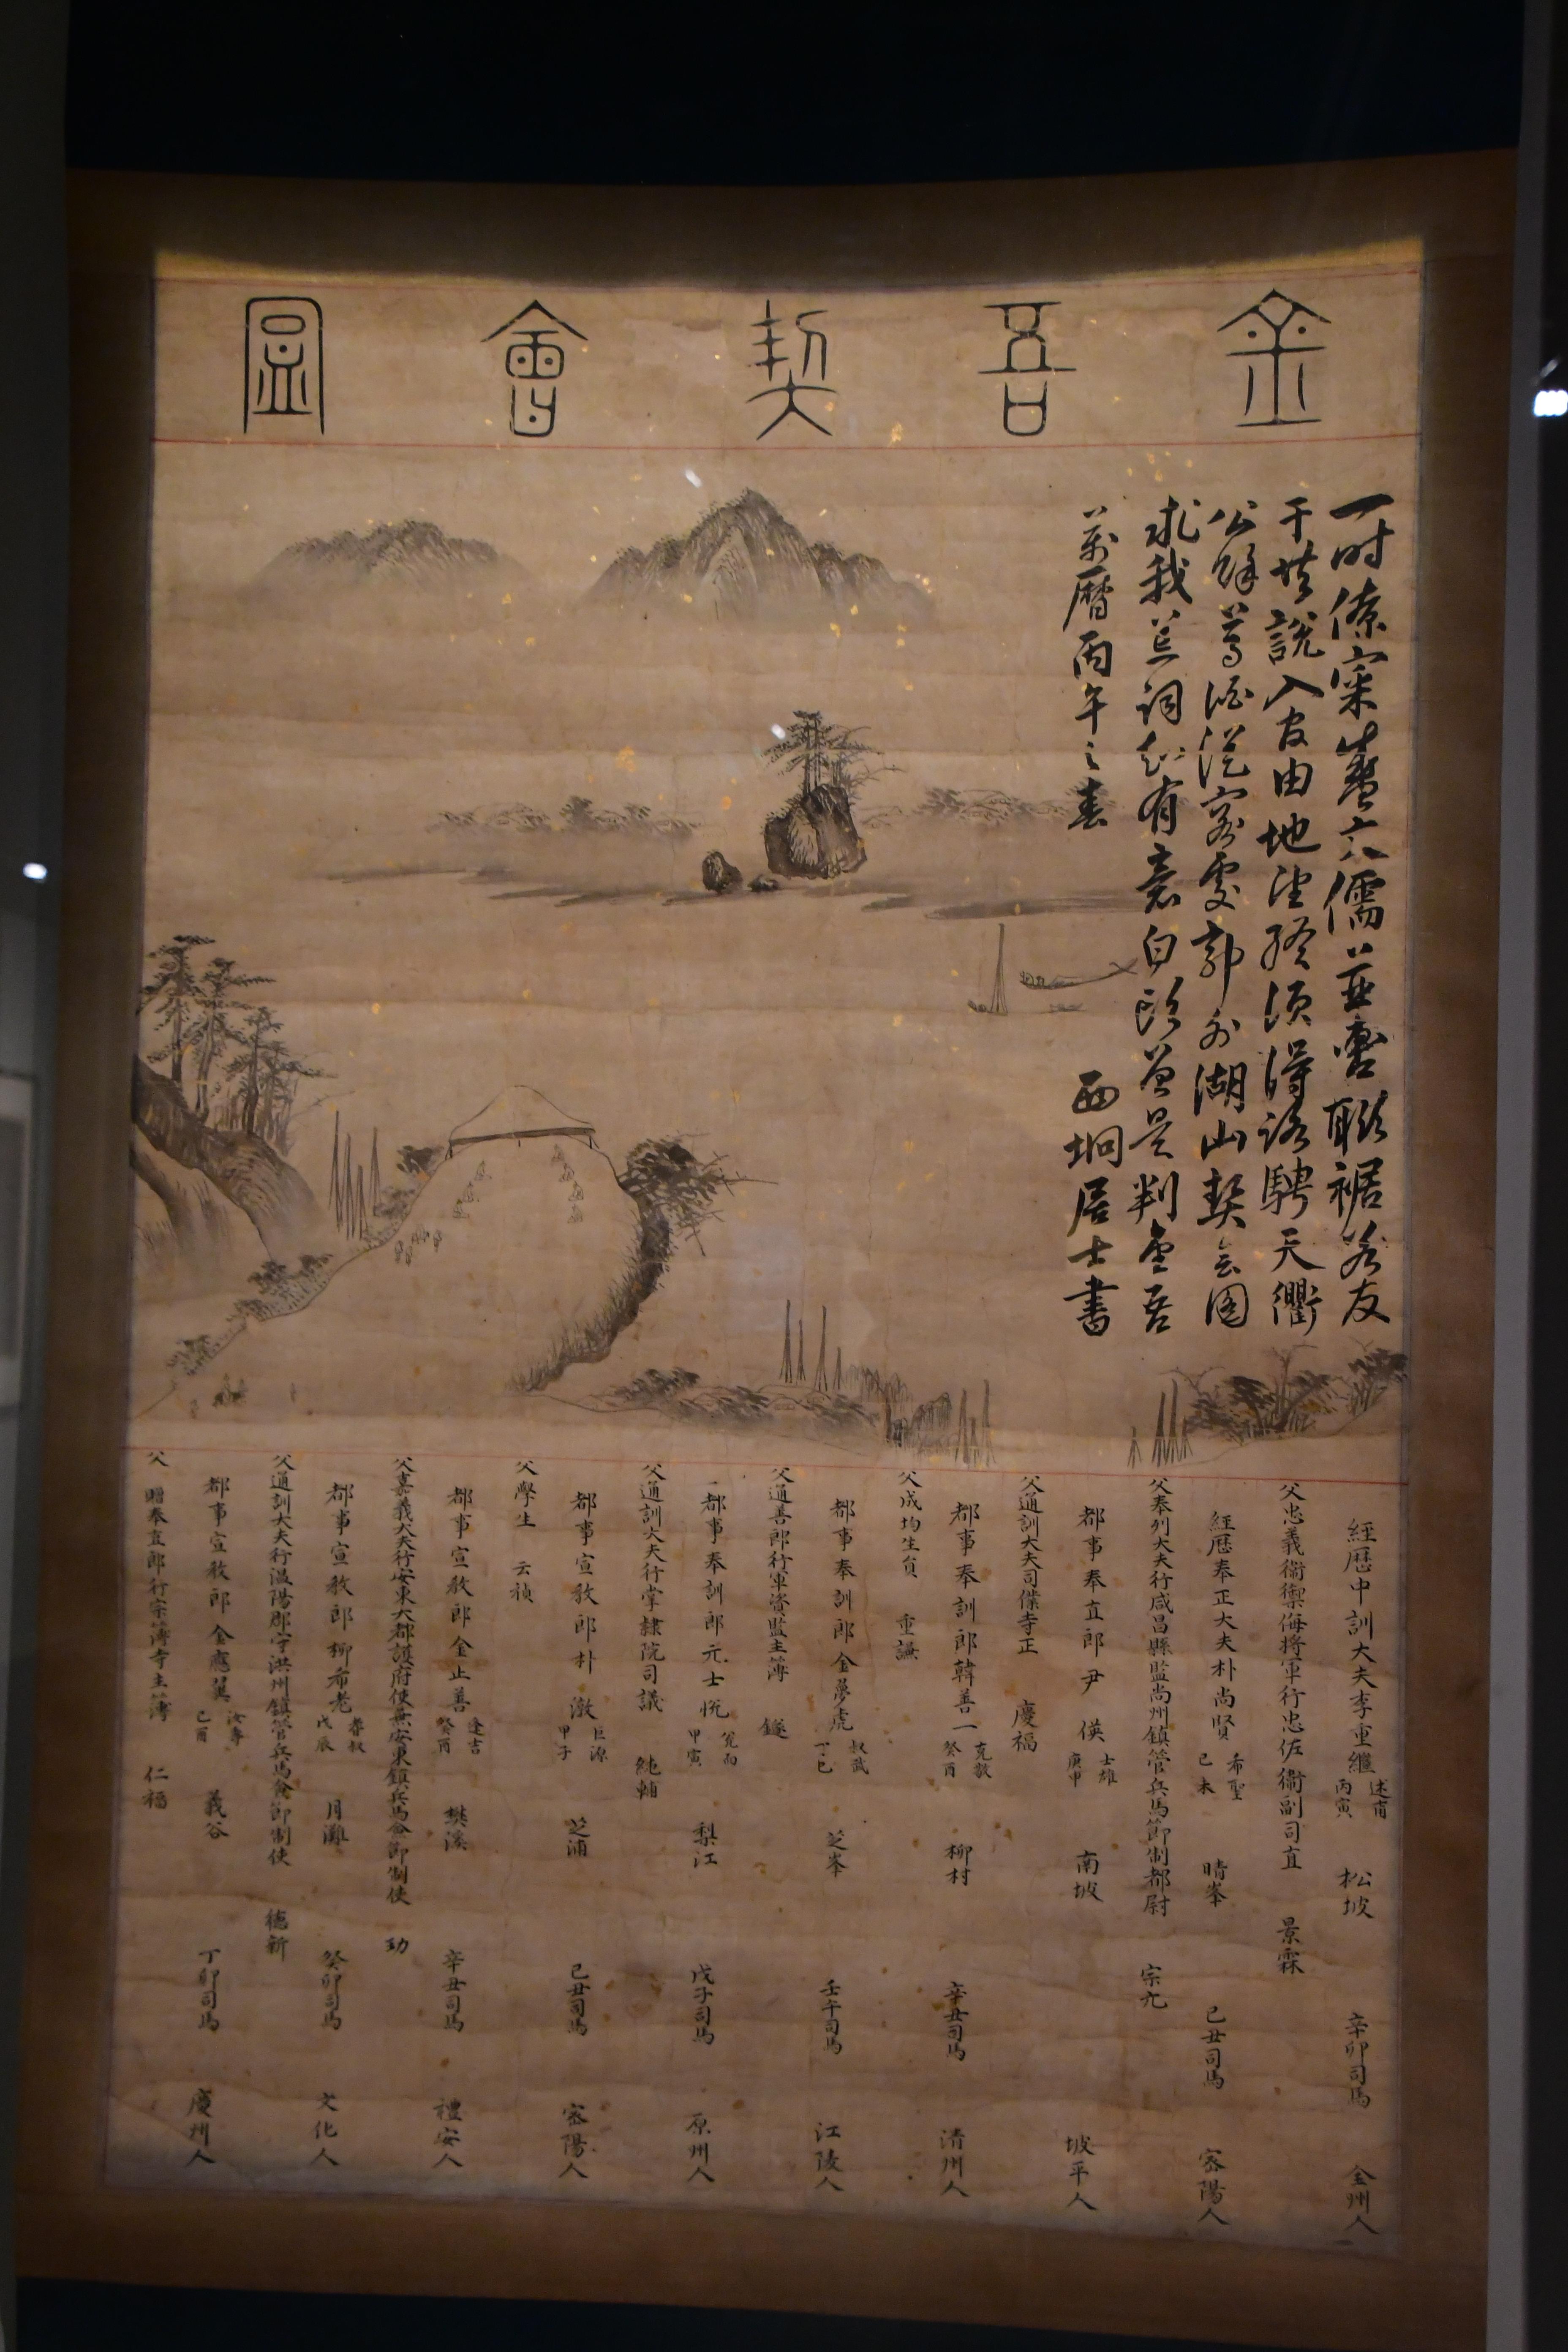 金吾契會圖
一時僚寀盡文儒並齒聯裾若友
于共說入官由地望終須得路騁天衢
公餘尊酒從容處郭外湖山契會圖
求我荒詞知有意白頭曾是判金吾
萬曆丙午之春 西坰居士書
經歷中訓大夫李重繼 述甫 丙寅 松坡 辛卯司馬 全州人
父忠義衛禦侮將軍行忠佐衛副司直 景霖
經歷奉正大夫朴尚賢 希聖 己未 晴峯 己丑司馬 密陽人
父奉列大夫行咸昌縣監尚州鎮管兵馬節制都尉 宗元
都事奉直郎尹 偀 士雄 庚申 南坡 坡平人
父通訓大夫司僕寺正 慶福
都事奉訓郎韓善一 克敬 癸酉 柳村 辛丑司馬 清州人
父成均生員 重謙
都事奉訓郎金夢虎 叔武 丁巳 芝峯 壬午司馬 江陵人
父通善郎行軍資監主簿 鐩
都事奉訓郎元士悅 寬而 甲寅 梨江 戊子司馬 原州人
父通訓大夫行掌隸院司議 純輔
都事宣教郎朴 潡 巨源 甲子 芝浦 己丑司馬 密陽人
父學生 云禎
都事宣教郎金止善 逢吉 癸酉 樊溪 辛丑司馬 禮安人
父嘉義大夫行安東大都護府使兼安東鎮兵馬僉節制使 功
都事宣教郎柳希老 春叔 戊辰 月灘 癸卯司馬 文化人
父通訓大夫行溫陽郡守洪州鎮管兵馬僉節制使 德新
都事宣教郎金應翼 汝壽 己酉 義谷 丁卯司馬 慶州人
父 贈奉直郎行宗簿寺主簿 仁福